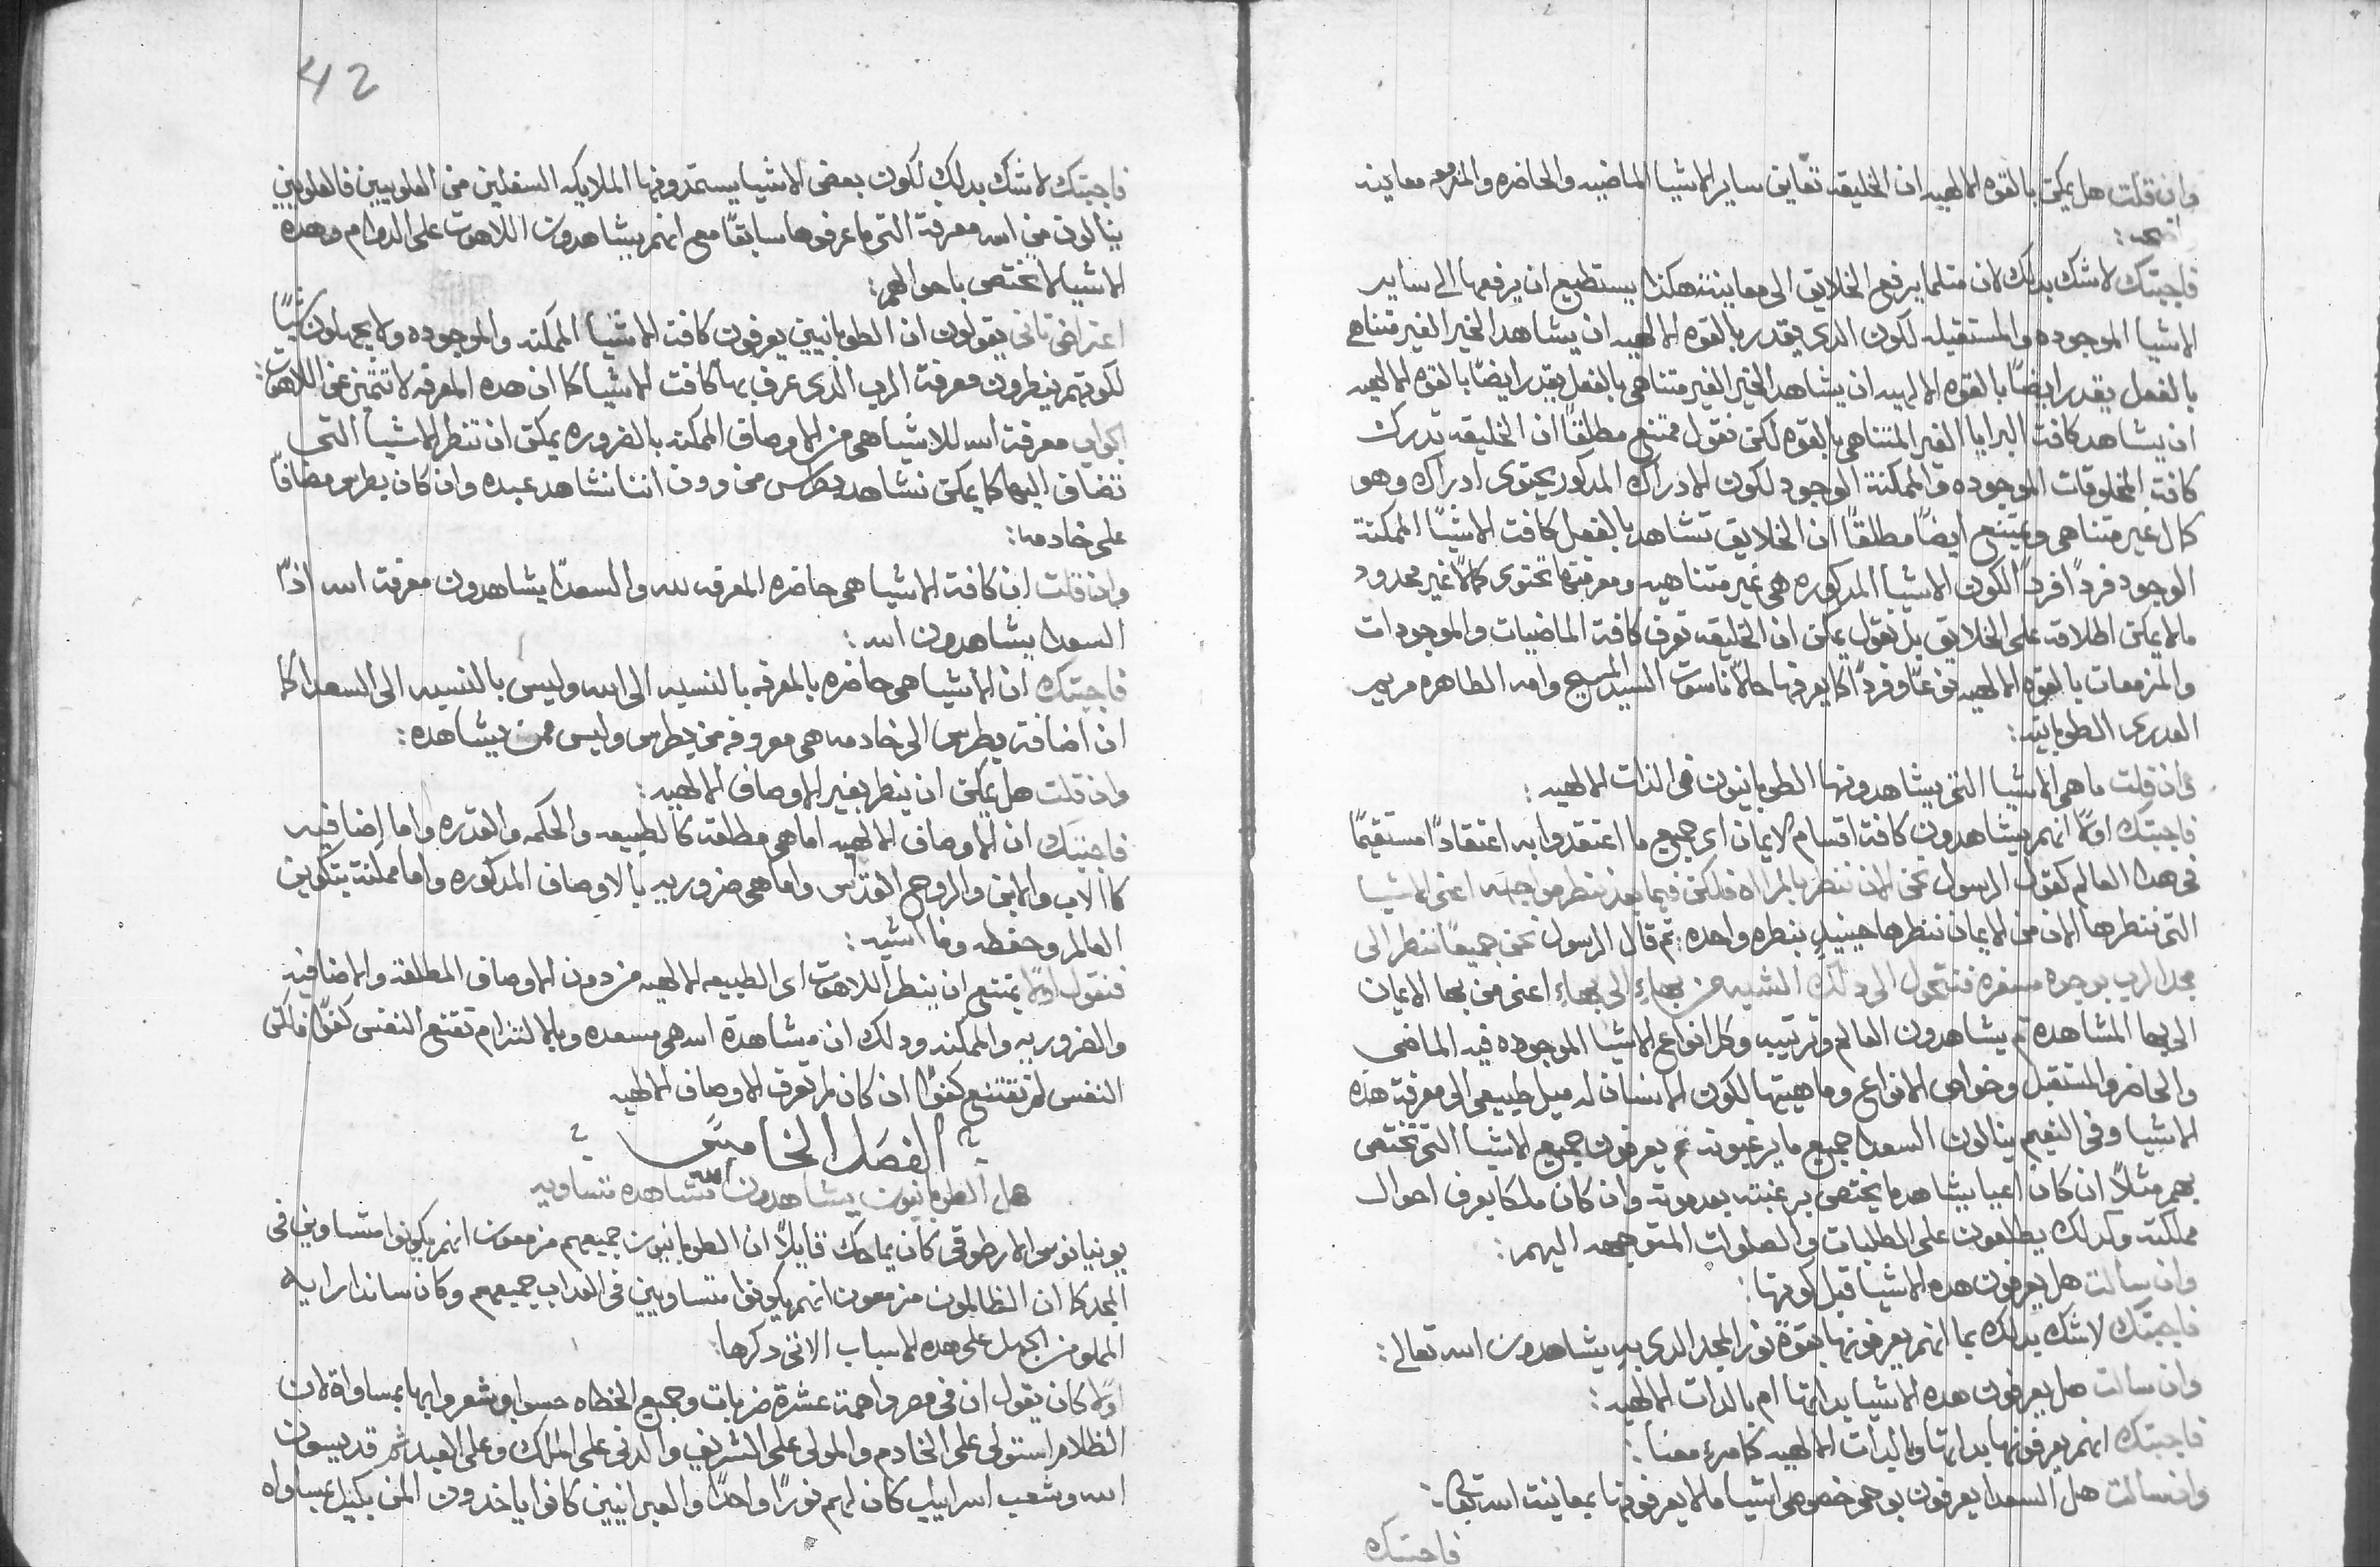 وان قلت هل يمكن بالقوه الالهيه ان الخليقه تعاين ساير الاشيا الماضيه والحاضره والمزمعه معاينه
فاجبتك لاشك بدلك لان متلما يرفع الخلايق الى معاينته هكدا يستطيع ان يرفعها الى ساير
الاشيا الموجوده والمستقبله لكون الدى يقدر بالقوه الالهيه ان يشاهد الخير الغير متناهى
بالفعل يقدر ايضًا بالقوه الالهيه ان يشاهد الخير الغير متناهى بالفعل يقدر ايضًا بالقوه الالهيه
ان يشاهد كافت البرايا الغير المتناهى بالقوه لكن نقول ممتنع مطلقًا ان الخليقه تدرك
كافة المخلوقات الموجوده والممكنة الوجود لكون الادراك المدكور يحتوى ادراك وهو
كمال غير متناهى ويمتنع ايضًا مطلقًا ان الخلايق تشاهد بالفعل كافت الاشيًا الممكنة
الوجود فردًا فردًا لكون الاشيا المدكوره هى غير متناهيه ومعرفتها تحتوى كمالًا غير محدود
مالا يمكن اطلاقه على الخلايق بل نقول يمكن ان الخليقه تعرف كافة الماضيات والموجودات
والمزمعات بالقوه الالهيه نوعًا وفردًا كما يعرفها حالًا ناسوت السيد المسيح وامه الطاهره مريم
العدرى الطوبانيه:
وان قلت ما هى الاشيا التى يشاهدونها الطوبانيون فى الدات الالهيه:
فاجبتك اولًا انهم يشاهدون كافة اقسام الايمان اى جميع ما اعتقدوا به اعتقادًا مستقيمًا
فى هدا العالم كقول الرسول نحن الان ننظر بالمراه فلكن فيما بعد ننظر مواجهه اعنى الاشيا
التى ننظرها الان من الايمان ننظرها حينيدٍ بنظره واحده: تم قال الرسول نحن جميعًا ننظر الى
مجد الرب بوجوه مسفره فنتحول الى دلك الشبه من بهاءٍ الى بهاءٍ اعنى من بها الايمان
الى بها المشاهدة تم يشاهدون العالم وترتيبه وكل انواع الاشيا الموجوده فيه الماضى
والحاضر والمستقبل وخواص الانواع وماهيتها لكون الانسان له ميل طبيعى الى معرفة هده
الاشيا وفى النعيم ينالون السعدا جميع ما يرغبونه تم يعرفون جميع الاشيا التى تختص
بهم مثلًا ان كان اعيا يشاهد ما يختص برغبته بعد موته وان كان ملكا يعرف احوال
مملكته وكدلك يطلعون على الطلبات والصلوات المتوجهه اليهم:
وان سالت هل يعرفون هده الاشيا قبل كونها:
فاجبتك لاشك بدلك بما انهم يعرفونها بقوة نور المجد الدى به يشاهدون الله تعالى:
وان سالت هل يعرفون هده الاشيا بداتها ام بالدات الالهيه:
فاجبتك انهم يعرفونها بداتها وبالدات الالهيه كما مرة معنا:
وان سالت هل السعدا يعرفون بوحى خصوصى اشيا ما لا يعرفونها بمعاينت الله تعالى:
فاجبتك
42
فاجبتك لاشك بدلك لكون بعض الاشيا يستمدونها الملايكه السفليين من العلويين فالعلويين
ينالون من الله معرفة التى ما عرفوها سابقًا مع انهم يشاهدون اللاهوت على الدوام وهده
الاشيا لا تختص باحوالهم:
اعتراض تانى يقولون ان الطوبانيين يعرفون كافت الاشيا الممكنه والموجوده ولا يجهلون شيًا
لكونهم ينظرون معرفة الرب الدى عرف بها كافت الاشيا كما ان هده المعرفه لا تتميز عن اللاهوت:
الجواب معرفة الله للاشيا هى من الاوصاف الممكنه بالضروره يمكن ان تنظر الاشيا التى
تضاف اليها كما يمكن نشاهد بطرس من دون اننا نشاهد عبده وان كان بطرس مضافًا
على خادمه:
وان قلت ان كافة الاشيا هى حاضره المعرفه لله والسعدًا يشاهدون معرفة الله ادًا
السعدا يشاهدون الله:
فاجبتك ان الاشيا هى حاضره بالمعرفه بالنسبه الى الله وليس بالنسبه الى السعدا كما
ان اضافة بطرس الى خادمه هى معروفه من بطرس وليس ممن يشاهده:
وان قلت هل يمكن ان ينظر بغير الاوصاف الالهيه:
فاجبتك ان الاوصاف الالهيه اما هى مطلقه كالطبيعه والحكمه والقدره واما اضافيه
كالاب والابن والروح القدس واما هى ضروريه بالاوصاف المدكوره واما ممكنة بتكوين
العالم وحفظه وما اشبه:
فنقول اولًا يمتنع ان ينظر اللاهوت اى الطبيعه الالهيه من دون الاوصاف المطلقه والاضافيه
والضروريه والممكنه ودلك ان مشاهدة الله هى مسعده وبالالتزام تقنع النفس كفوًا فلكن
النفس لم تقتنع كفوًا ان كان لم تعرف الاوصاف الالهيه
الفصل الخامس
هل الطوبانيون يشاهدون الله مشاهده متساويه
يونيانوس الارطوقى كان يماحك قايلًا ان الطوبانيون جميعهم مزمعون انهم يكونوا متساوين فى
المجد كما ان الظالمون مزمعون انهم يكونوا متساويين فى العداب جميعهم وكان ساندا رايه
المملو من الجهل على هده الاسباب الاتى دكرها:
اولًا كان يقول ان فى مصر واحدة عشرة ضربات وجميع الخطاه حسوا وشعروا بها بمساواة لان
الظلام استولى على الخادم والمولى على الشريف والدنى على الملك وعلى العبد تم قديسون
الله وشعب اسراييل كان لهم نورًا واحدًا والعبرانيين كانوا ياخدون المن بكيل بمساواه